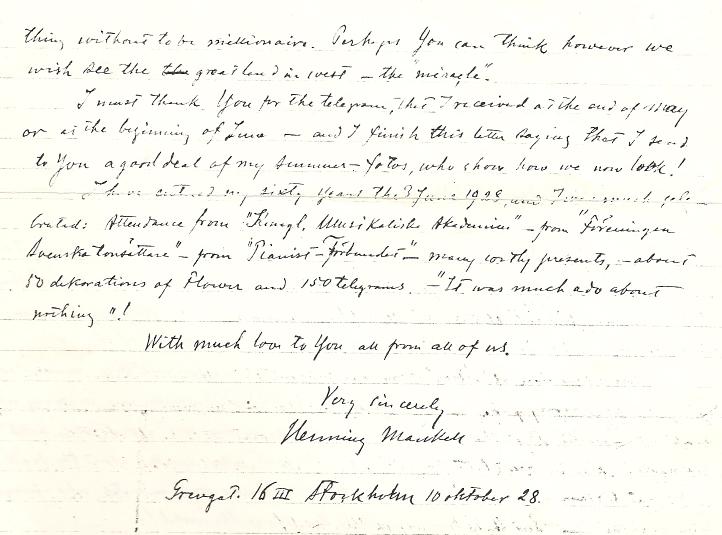 thing without to be millionaire. Perhaps You can think however we
wish see the the great land in west – the "miracle".
I must thank You for the telegram, that I received at the end of May
or at the beginning of June – and I finish this letter saying that I send
to You a good deal of my summer-fotos, who show how we now look!
I have entred my sixty years the 3 June 1928, and I was much cele-
brated: Attendance from "Kungl. Musikaliska Akademien" – from "Föreningen
Svenska tonsättare" – from "Pianist-Förbundet" – many worthy presents, – about
50 dekorations of Flower and 150 telegrams. – "It was much ado about
nothing"!
With much love to You all from all of us.
Very sincerely
Henning Mankell
Grevgat. 16 III Stockholm 10 oktober 28.